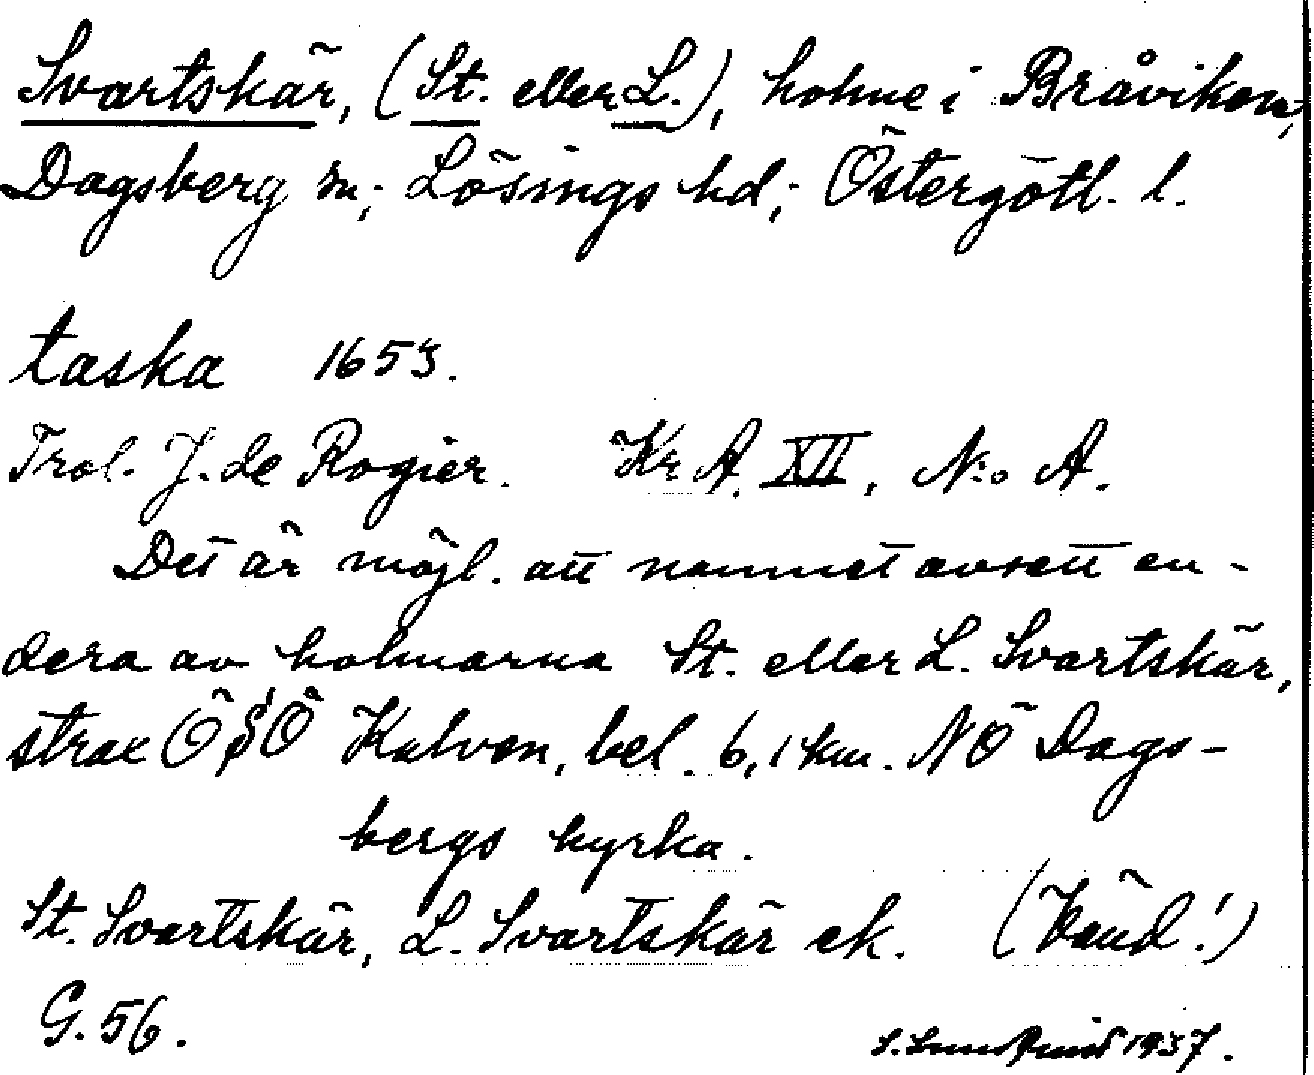 Svartskär, (St. eller L.), holme i Bråviken,
Dagsberg sn; Lösings hd; Östergötl. l.
taska 1653.
Trol. J. de Rogier. Kr A. XII, N:o A.
Det är möjl. att namnet avsett en-
dera av holmarna St. eller L. Svartskär,
strax Ö S Ö Kalven, bel. 6,1 km. NÖ Dags-
bergs kyrka.
St. Svartskär, L. Svartskär ek. (Vänd!)
G. 56.
S. Lundqvist 1937.